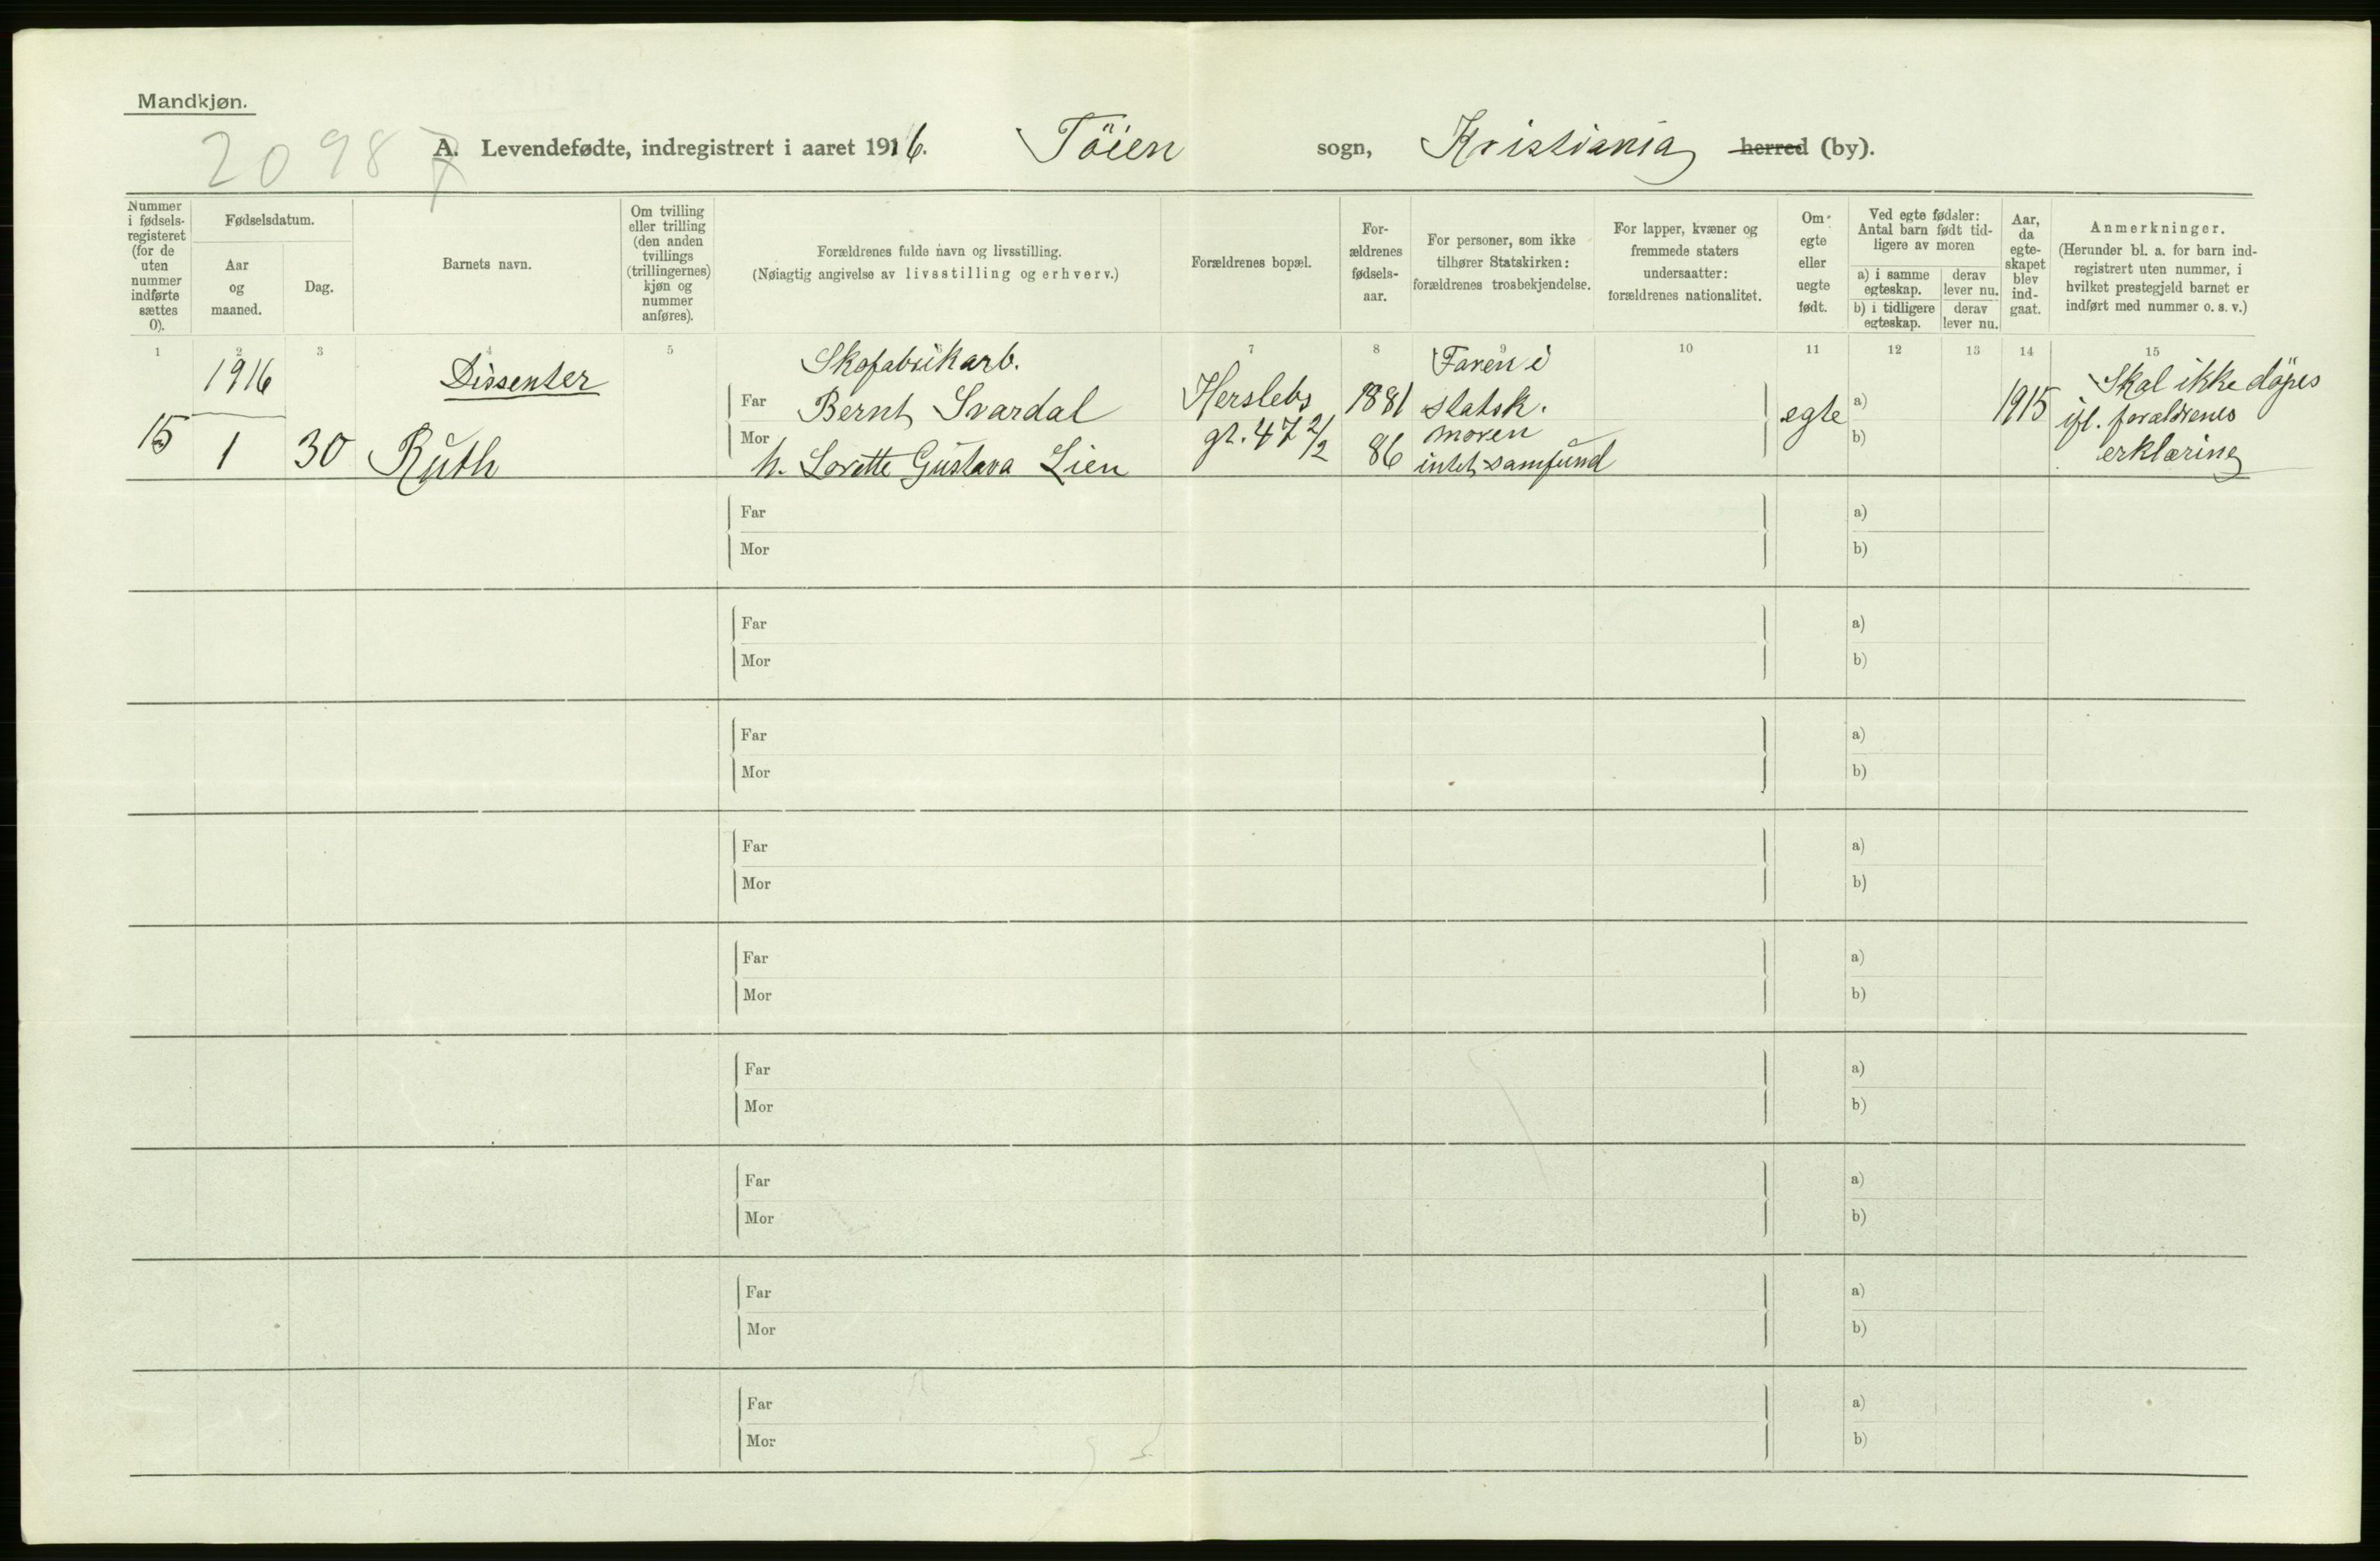 Mandkjøn.
2098
A. Levendefødte, indregistrert i aaret 1916. Töien sogn, Kristiania herred (by).
Nummer i fødsels-registeret (for de uten nummer indførte sættes 0).
Fødselsdatum.
Aar og maaned.
Dag.
Barnets navn.
Om tvilling eller trilling (den anden tvillings (trillingernes) kjøn og nummer anføres).
Forældrenes fulde navn og livsstilling.
(Nøiagtig angivelse av livsstilling og erhverv.)
Forældrenes bopæl.
For-ældrenes fødsels-aar.
For personer, som ikke tilhører Statskirken: forældrenes trosbekjendelse.
For lapper, kvæner og fremmede staters undersaatter: forældrenes nationalitet.
Om egte eller uegte født.
Ved egte fødsler: Antal barn født tid-ligere av moren
a) i samme egteskap.
derav lever nu.
b) i tidligere egteskap.
derav lever nu.
Aar, da egte-skapet blev ind-gaat.
Anmerkninger.
(Herunder bl. a. for barn ind-registrert uten nummer, i hvilket prestegjeld barnet er indført med nummer o. s. v.)
1 2 3 4 5 6 7 8 9 10 11 12 13 14 15
15
1916
1
30
Dissenter
Ruth
Skofabrikarb.
Far Bernt Svardal
Mor h. Lorette Gustava Lien
Herslebs
gt. 47 2/2
1881
86
Faren i
statsk.
moren
intet samfund
egte
a)
b)
1915
Skal ikke döpes
ifl. forældrenes
erklæring
Far a)
Mor b)
Far a)
Mor b)
Far a)
Mor b)
Far a)
Mor b)
Far a)
Mor b)
Far a)
Mor b)
Far a)
Mor b)
Far a)
Mor b)
Far a)
Mor b)